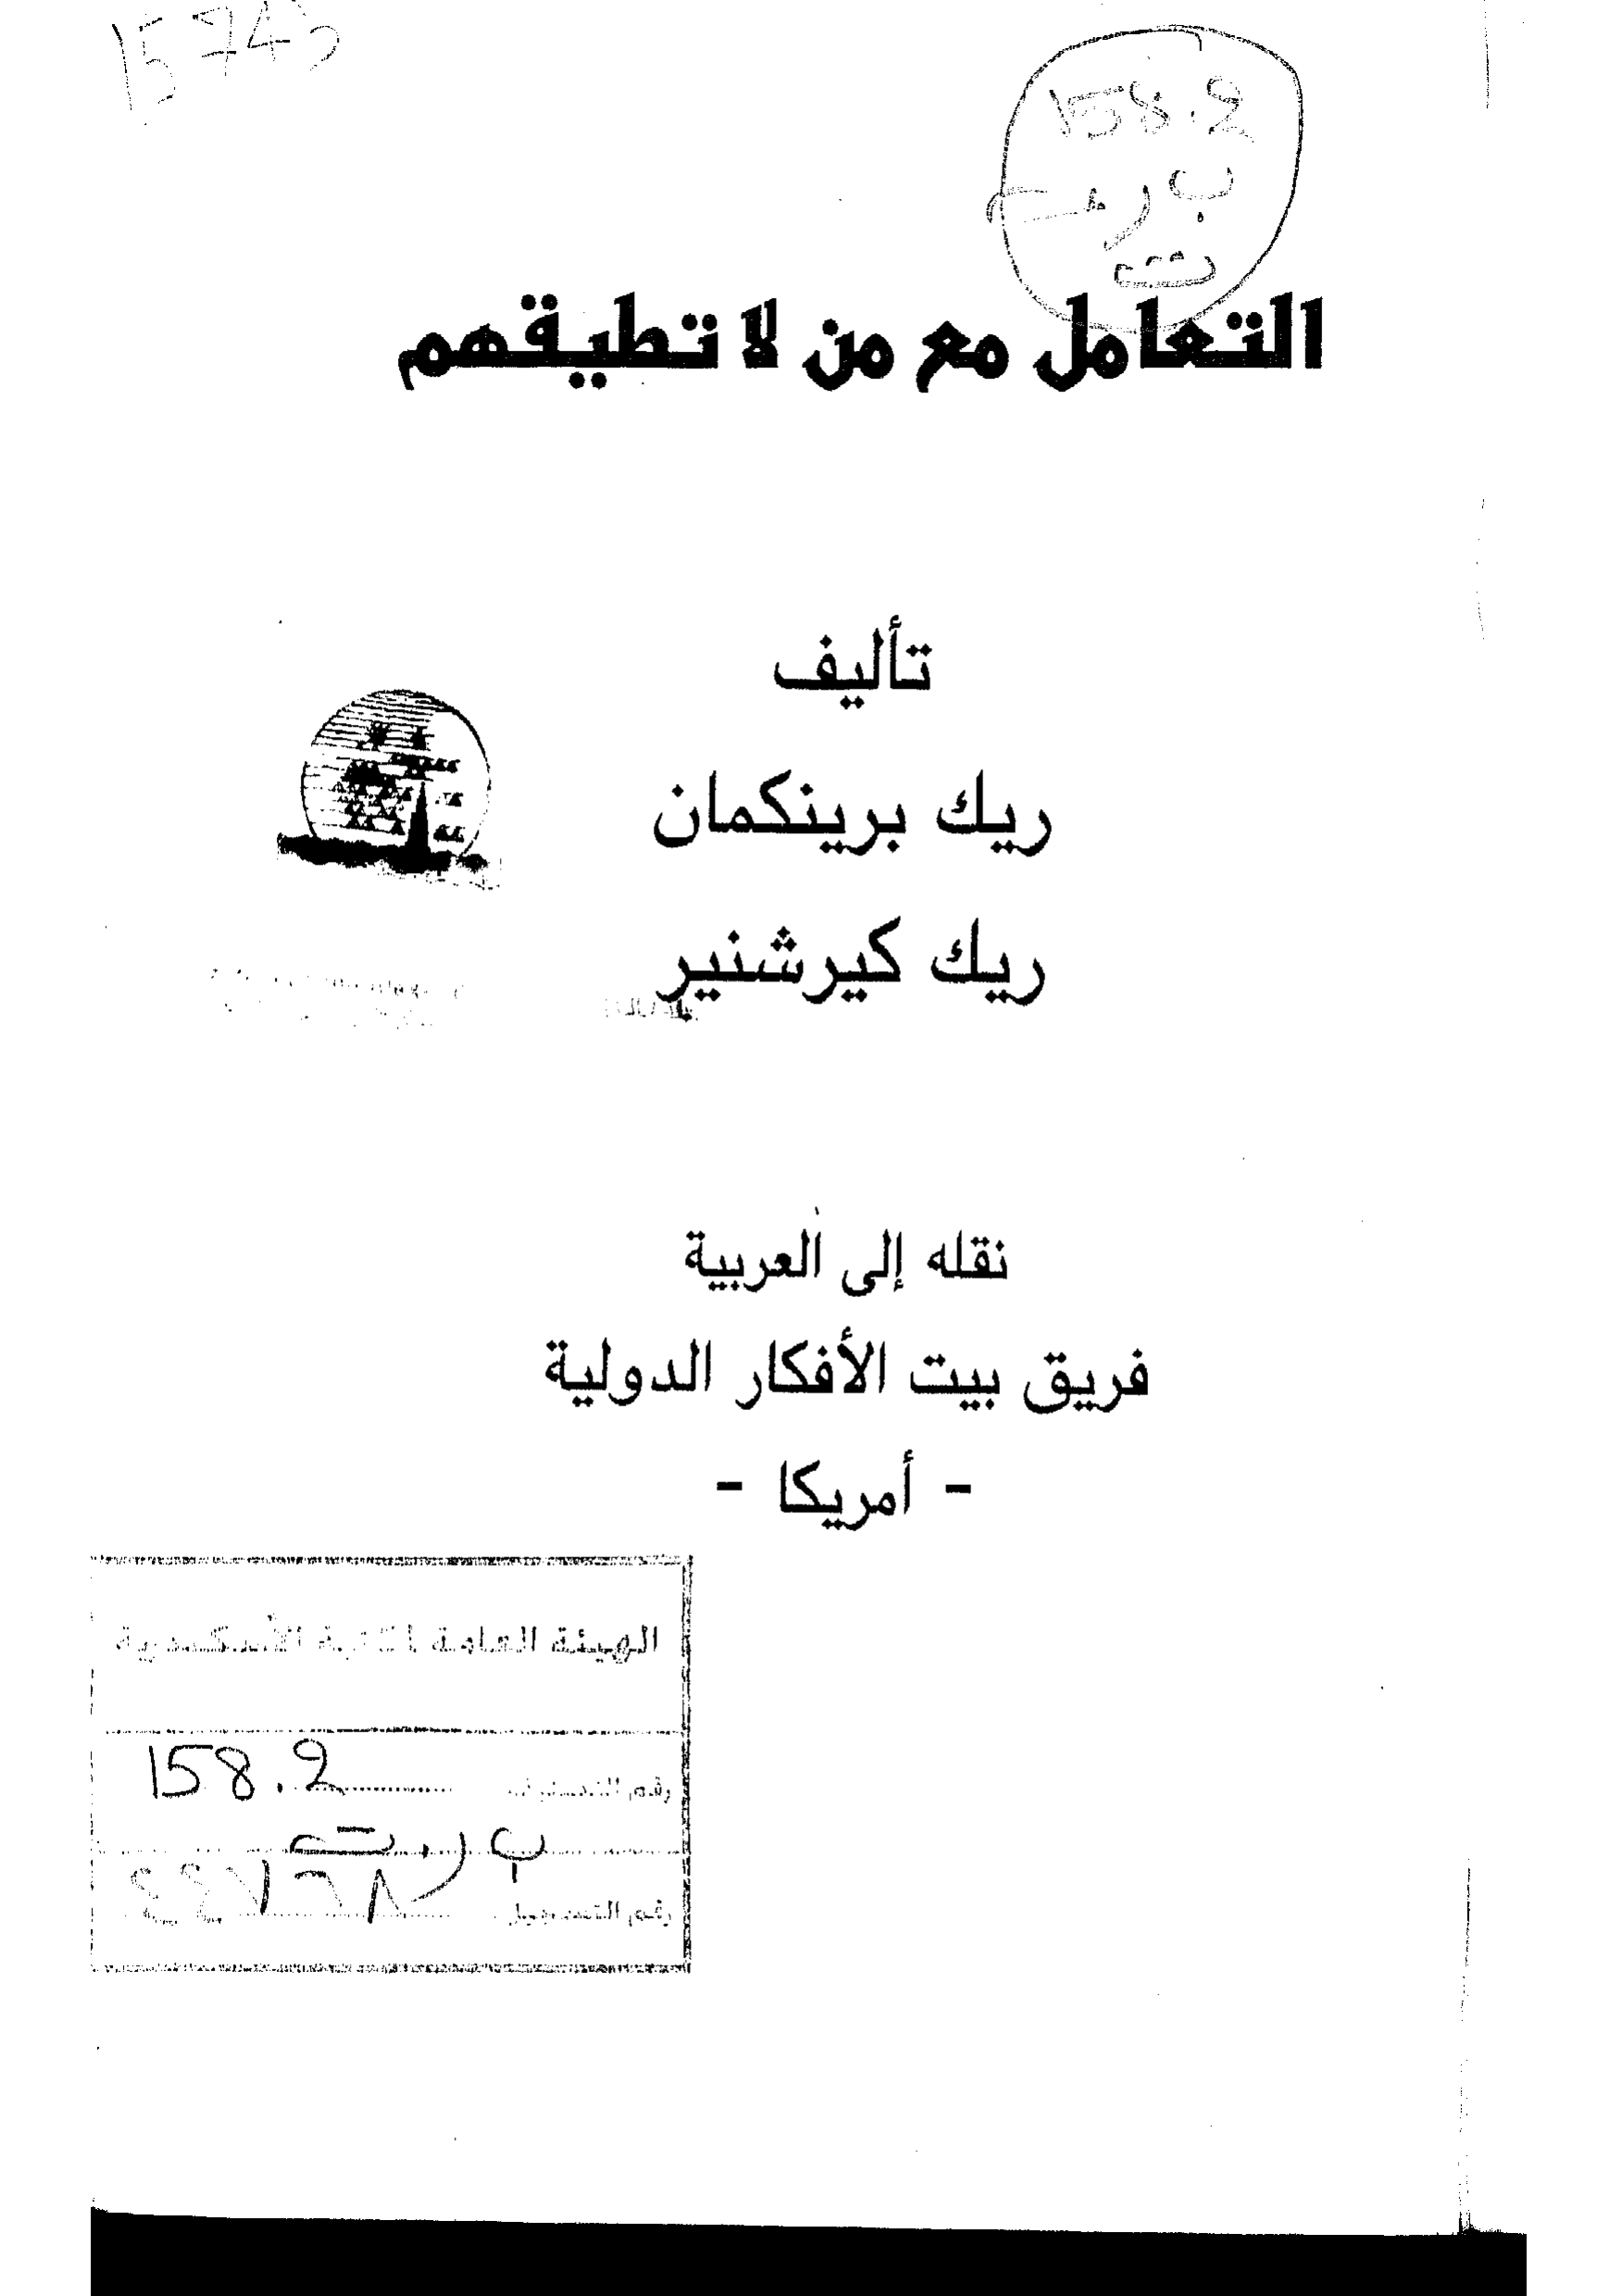 15743
158.2
ب ر
ت
التعامل مع من لا تطيقهم
تأليف
ريك برينكمان
ريك كيرشنير
نقله إلى العربية
فريق بيت الأفكار الدولية
- أمريكا -
الهيئة العامة لمكتبة الأسكندرية
رقم التصنيف 158.2
ب ر ت
رقم التسجيل